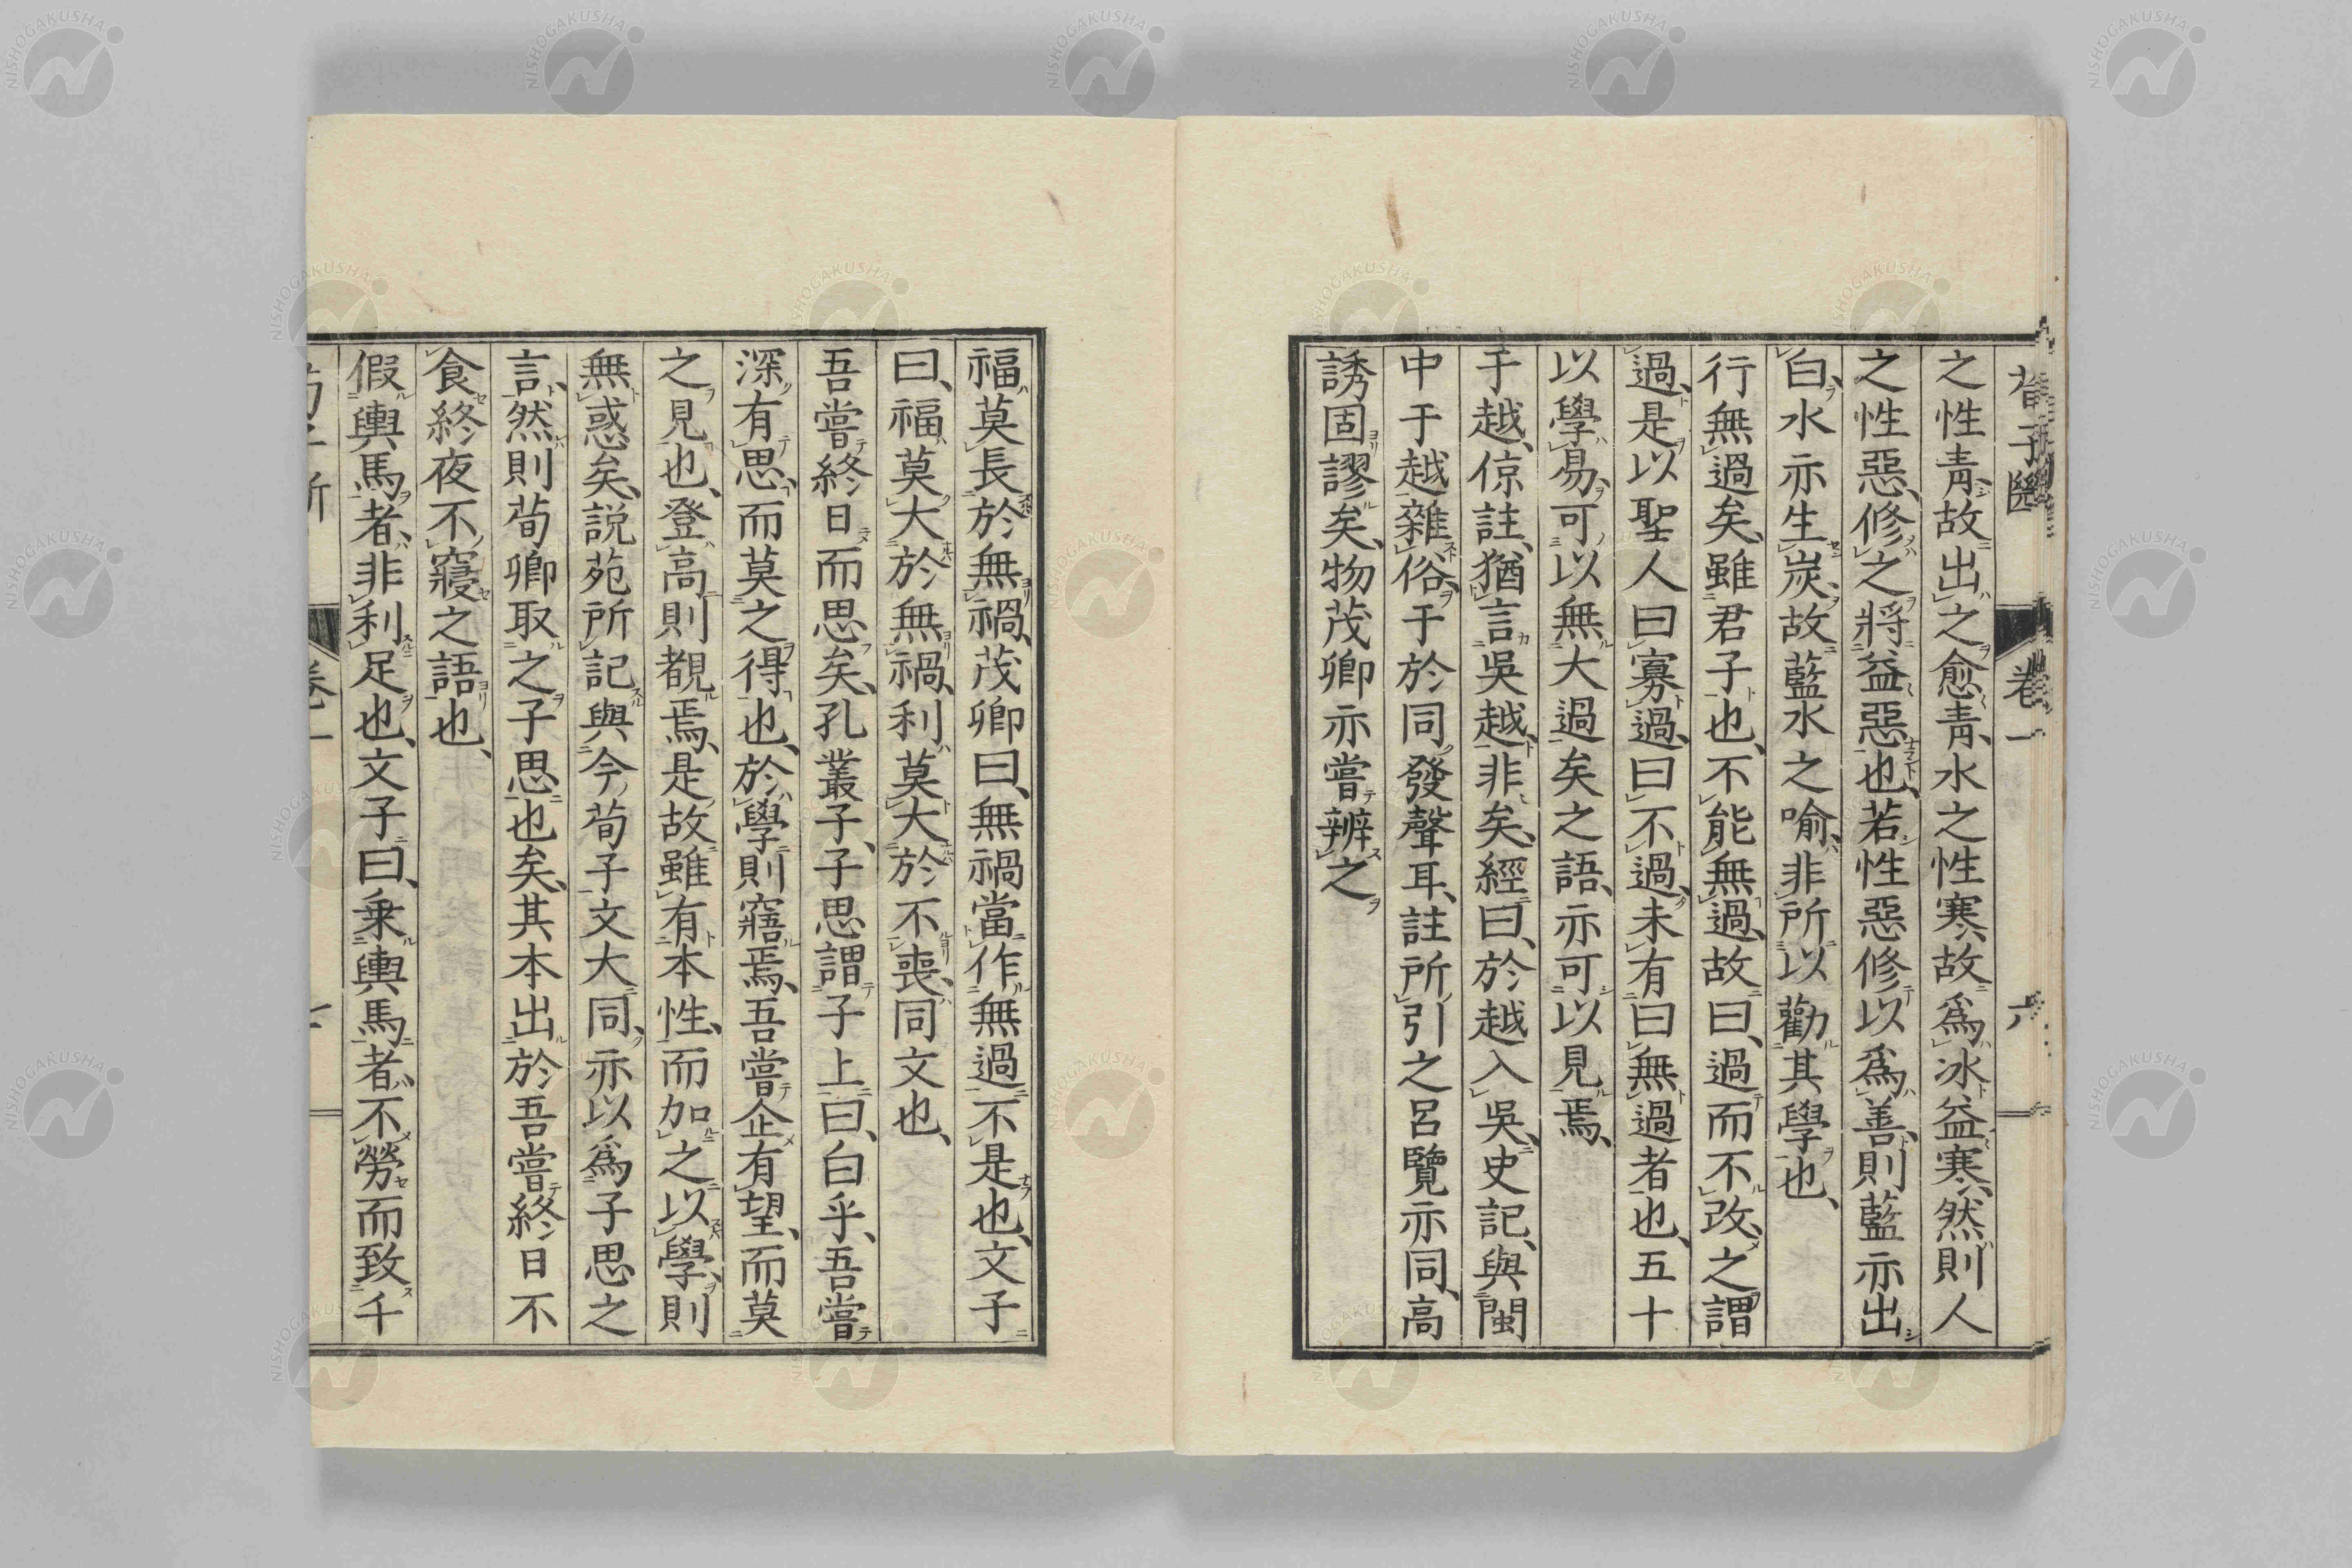 之性靑故出之愈靑水之性寒故爲冰益寒然則人
之性惡修之將益惡也若性惡修以爲善則藍亦出
白水亦生炭故藍水之喻非所以勸其學也
行無過矣雖君子也不能無過故曰過而不改之謂
過是以聖人曰寡過曰不過未有曰無過者也五十
以學易可以無大過矣之語亦可以見焉
于越倞註猶言吳越非矣經曰於越入吳史記與閩
中于越雜俗于於同發聲耳註所引之呂覽亦同高
誘固謬矣物茂卿亦嘗辨之
福莫長於無禍茂卿曰無禍當作無過不是也文子
曰福莫大於無禍利莫大於不喪同文也
吾嘗終日而思矣孔叢子子思謂子上曰白乎吾嘗
深有思而莫之得也於學則寤焉吾嘗企有望而莫
之見也登高則覩焉是故雖有本性而加之以學則
無惑矣說苑所記與今荀子文大同亦以爲子思之
言然則荀卿取之子思也矣其本出於吾嘗終日不
食終夜不寢之語也
假輿馬者非利足也文子曰乗輿馬者不勞而致千
卷一
NISHOGAKUSHA